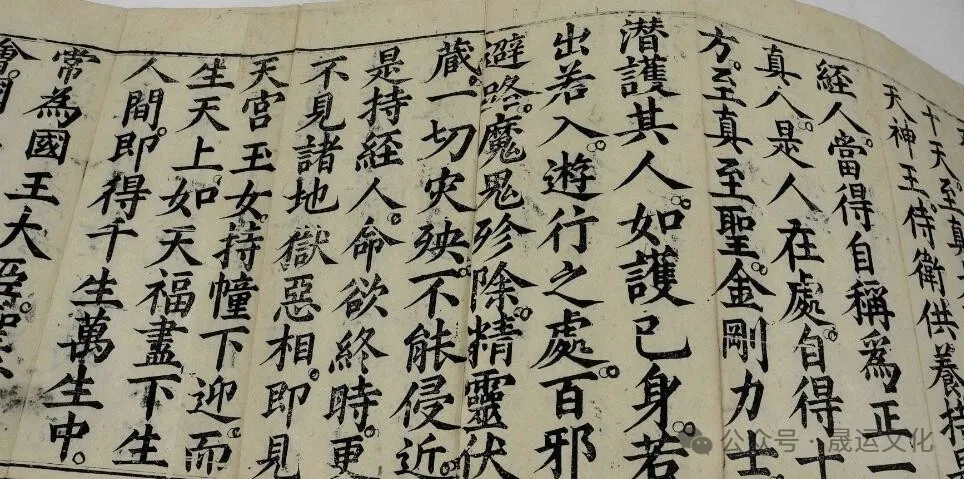 十天。至真
天神王。侍衛供養持
經人。當得自稱爲正一
真人。是人在處。自得十
方。至真至聖。金剛力士。
潜護其人。如護已身。若
出若入。遊行之處。百邪
避路。魔鬼殄除。精靈伏
藏。一切灾殃。不能侵近。
是持經人。命欲終時。更
不見諸地獄惡相。即見
天宮玉女。持幢下迎。而
生天上。如天福盡下生
人間。即得千生萬生中。
常為國王大臣。
會
公众号·晟运文化